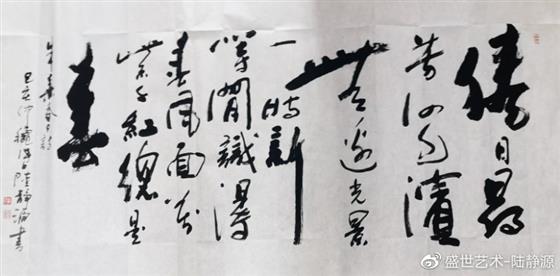 勝日尋
芳泗水濱
無邊光景
一時新
等閒識得
東風面萬
紫千紅總是
春
朱熹春日詩
己亥仲穐陸靜源書
@盛世艺术-陆静源